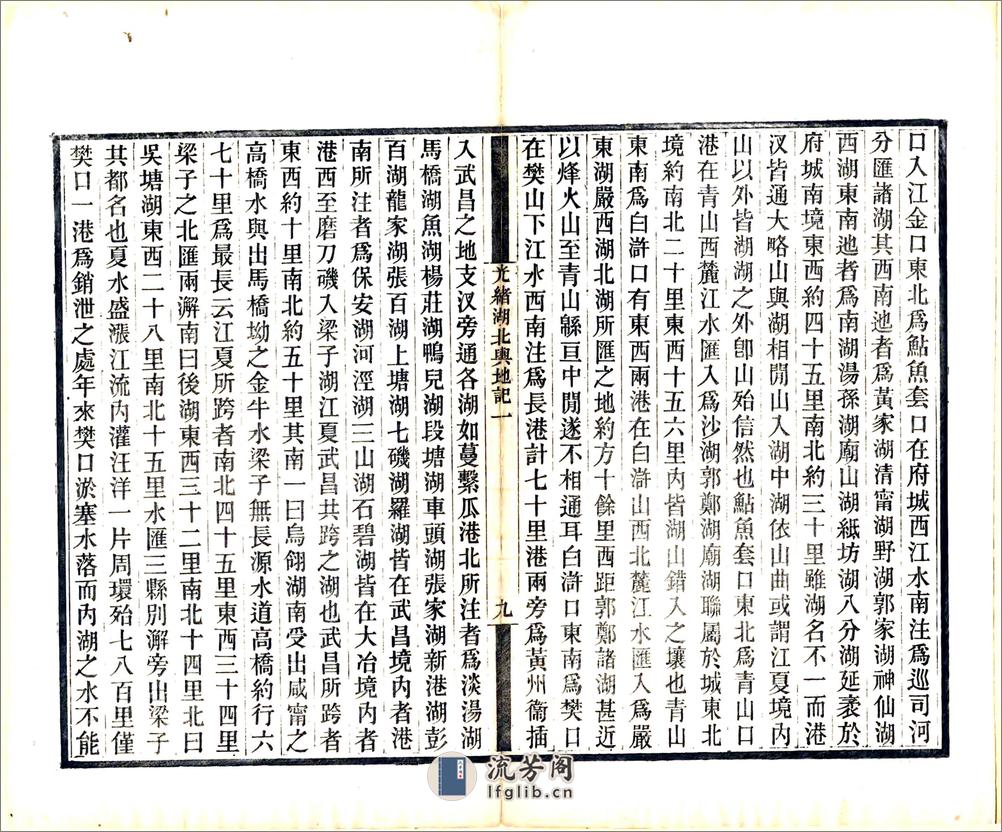 口入江金口東北爲鮎魚套口在府城西江水南注爲巡司河
分匯諸湖其西南迆者爲黃家湖清甯湖野湖郭家湖神仙湖
西湖東南迆者爲南湖湯孫湖廟山湖紙坊湖八分湖延袤於
府城南境東西約四十五里南北約三十里雖湖名不一而港
汊皆通大略山與湖相閒山入湖中湖依山曲或謂江夏境內
山以外皆湖湖之外卽山殆信然也鮎魚套口東北爲青山口
港在青山西麓江水匯入爲沙湖郭鄭湖廟湖聯屬於城東北
境約南北二十里東西十五六里內皆湖山錯入之壤也青山
東南爲白滸口有東西兩港在白滸山西北麓江水匯入爲嚴
東湖嚴西湖北湖所匯之地約方十餘里西距郭鄭諸湖甚近
以烽火山至青山緜亘中閒遂不相通耳白滸口東南爲樊口
在樊山下江水西南注爲長港計七十里港兩旁爲黃州衞插
光緒湖北輿地記一
九
入武昌之地支汊旁通各湖如蔓繫瓜港北所注者爲淡湯湖
馬橋湖魚湖楊莊湖鴨兒湖段塘湖車頭湖張家湖新港湖彭
百湖龍家湖張百湖上塘湖七磯湖羅湖皆在武昌境內者港
南所注者爲保安湖河涇湖三山湖石碧湖皆在大冶境內者
港西至磨刀磯入梁子湖江夏武昌共跨之湖也武昌所跨者
東西約十里南北約五十里其南一曰烏翎湖南受出咸甯之
高橋水與出馬橋坳之金牛水梁子無長源水道高橋約行六
七十里爲最長云江夏所跨者南北四十五里東西三十四里
梁子之北匯兩澥南曰後湖東西三十二里南北十四里北曰
吳塘湖東西二十八里南北十五里水匯三縣別澥旁出梁子
其都名也夏水盛漲江流內灌汪洋一片周環殆七八百里僅
樊口一港爲銷泄之處年來樊口淤塞水落而內湖之水不能
流芳阁
lfglib.cn